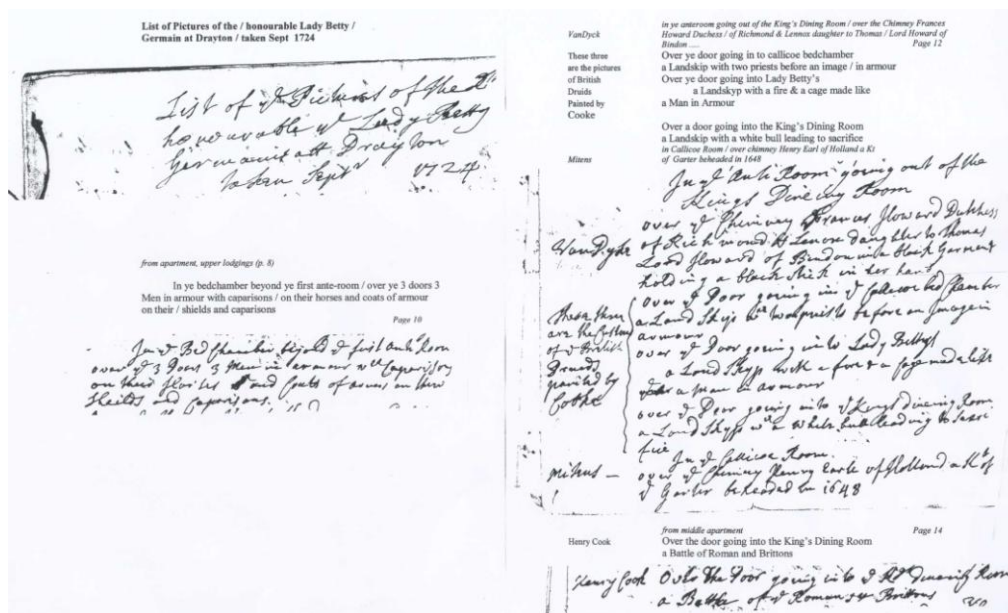 List of Pictures of the / honourable Lady Betty /
Germain at Drayton / taken Sept 1724
List of ye Pictures of the Rt
honourable ye Lady Betty
Germain att Drayton
taken Septr 1724
from apartment, upper lodgings (p. 8)
In ye bedchamber beyond ye first ante-room / over ye 3 doors 3
Men in armour with caparisons / on their horses and coats of armour
on their / shields and caparisons
Page 10
In ye Bed Chamber beyond ye first Anti Room
over ye 3 Doors 3 Men in armour wth Caparisons
on their Horses and Coats of armes on their
Sheilds and Caparisons.
in ye anteroom going out of the King's Dining Room / over the Chimney Frances
VanDyck Howard Duchess / of Richmond & Lennox daughter to Thomas / Lord Howard of
Bindon ..... Page 12
These three Over ye door going in to callicoe bedchamber
are the pictures a Landskip with two priests before an image / in armour
of British Over ye door going into Lady Betty's
Druids a Landskyp with a fire & a cage made like
Painted by a Man in Armour
Cooke
Over a door going into the King's Dining Room
a Landskip with a white bull leading to sacrifice
in Callicoe Room / over chimney Henry Earl of Holland a Kt
Mitens of Garter beheaded in 1648
In ye Anti Room going out of the
Kings Dineing Room
over ye Chimney Frances Howard Dutchess
VanDyke of Richmond & Lenox daughter to Thomas
Lord Howard of Bindon in a black Garment
holding a black Stick in her hand
over ye Door going in ye Callicoe bed Chamber
These three a Land Skip wth two preists before an Image in
are the Pictures armour
of ye British over ye Door going in to Lady Bettys
Drueids a Land Skyp with a fire & a Cage made like
painted by a man in armour
Cooke over ye Door going into ye Kings dineing Room
a Land Skyp wth a White bull leading to Sacri
fice
In ye Callicoe Room.
mitens — over ye Chimney Henry Earle of Holland a Kt of
ye Garter beheaded in 1648
from middle apartment Page 14
Henry Cook Over the door going into the King's Dining Room
a Battle of Roman and Brittons
Henry Cook Over the Door going into ye Dineing Room
a Battle of ye Romans & Brittons